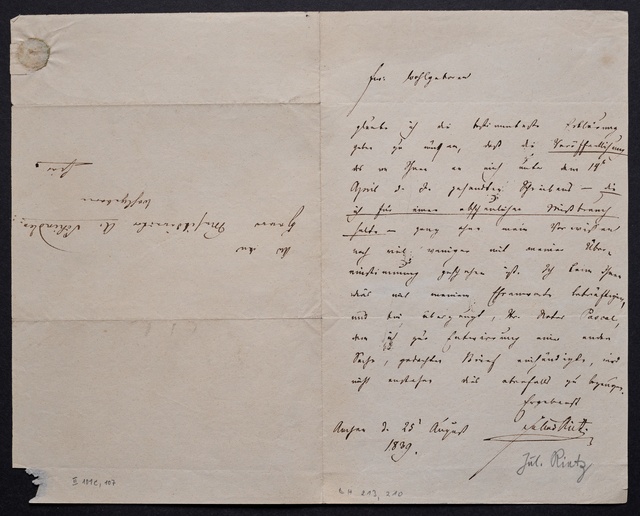 Ew. Wohlgeboren
glaube ich die bestimmteste Erklärung
geben zu müssen, daß die Veröffentlichung
des von Ihnen an mich unter dem 19t
April d. J. gesandten Schreibens — die
ich für einen abscheulichen Mißbrauch
halte — ganz ohne mein Vorwissen
noch viel weniger mit meiner Über-
einstimmung geschehen ist. Ich kann Ihnen
dies mit meinem Ehrenworte bekräftigen,
und bin überzeugt, Hr. Notar Pascal,
dem ich zur Entwirrung einer andern
Sache, gedachten Brief einhändigte, wird
nicht anstehen dies ebenfalls zu bezeugen.
Ergebenst
Julius Rietz
Aachen d. 25t August
1839.
Jul. Rietz
An den
Herrn Musikdirektor A. Schindler
Wohlgeboren
hier
213, 210